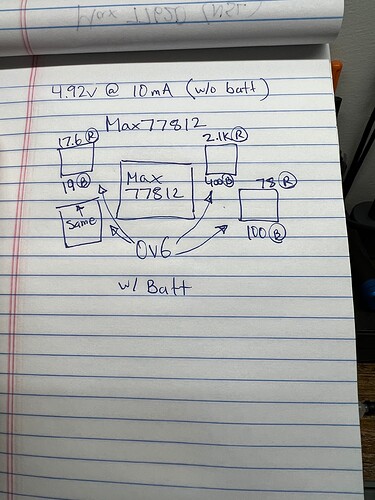 4.92v @ 10mA (w/o batt)
Max77812
17.6 R
2.1K R
Max
77812
19 B
400 B
78 R
Same
100 B
0v6
w/ Batt